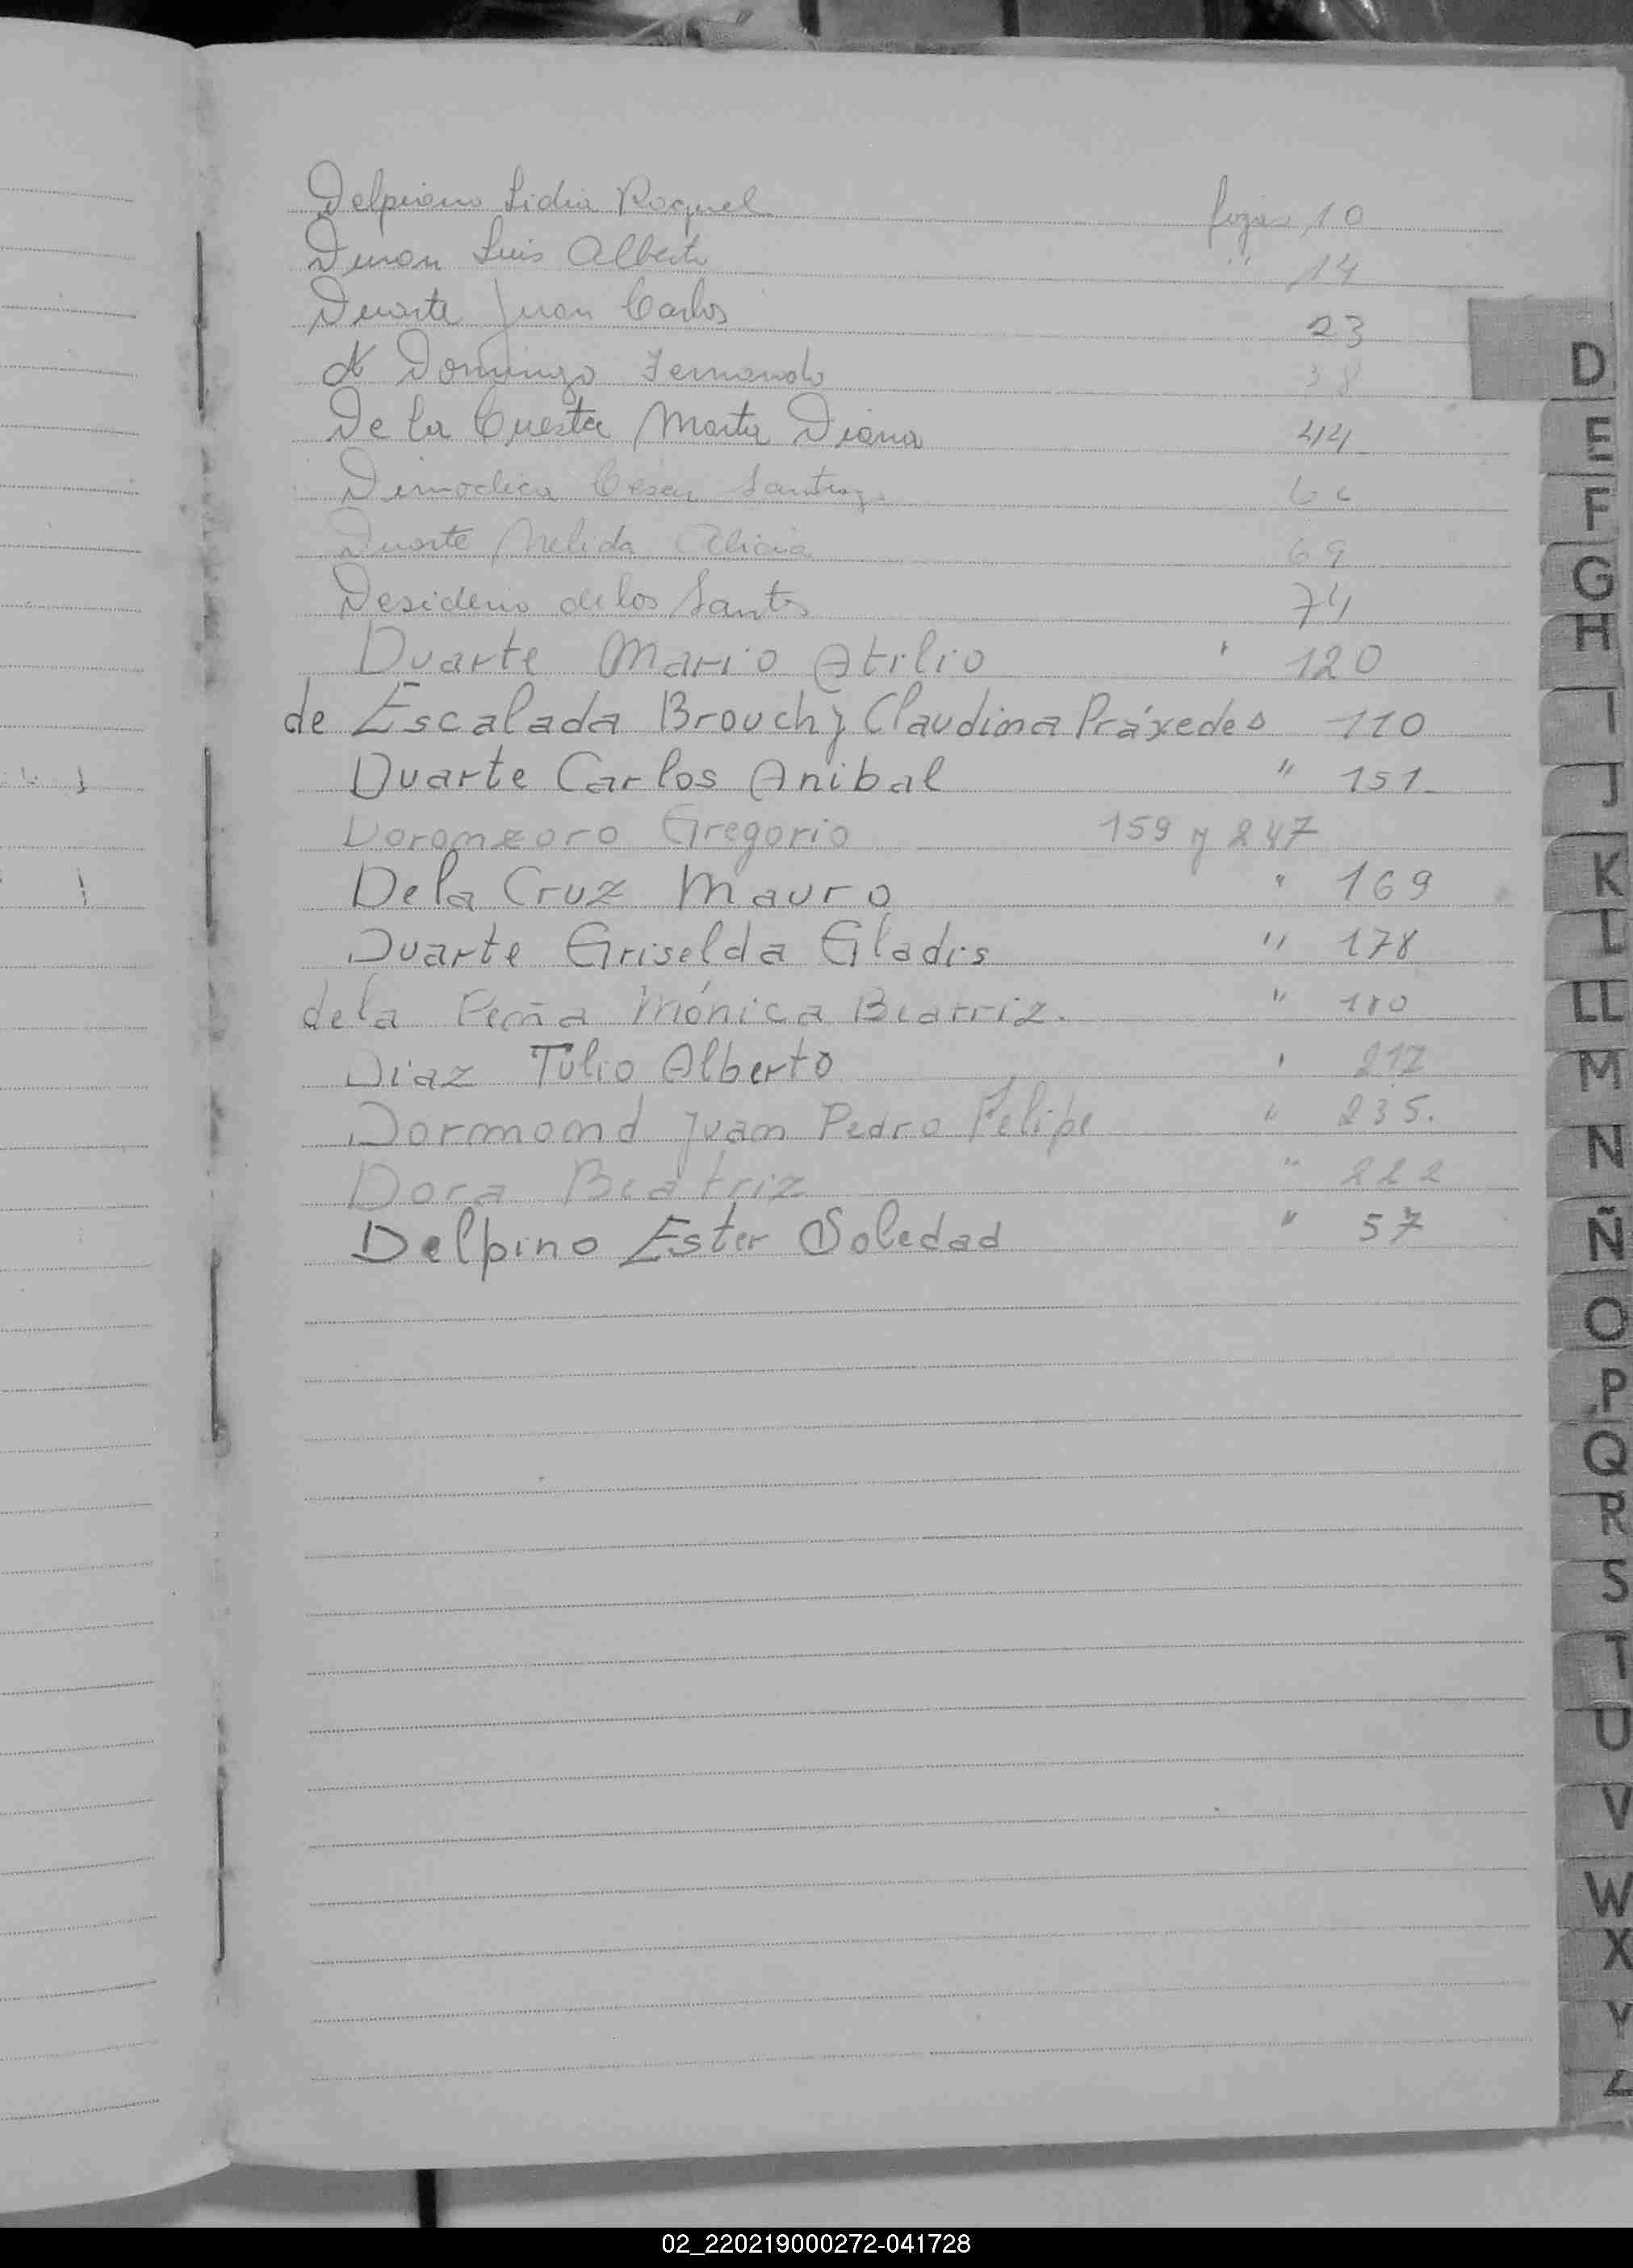 Delpiano Lidia Raquel fojas 10
Duran Luis Alberto " 14
Duarte Juan Carlos 23
de Domingo Fernando 38
De la Cuesta Marta Diana 44
Dimodica Cesar Santiago
Duarte Nelida Alicia 69
Desiderio de los Santos 74
Duarte Mario Atilio " 120
de Escalada Brouchy Claudina Práxedes 110
Duarte Carlos Anibal " 151
Doronzoro Gregorio 159 y 247
Dela Cruz Mauro " 169
Duarte Griselda Gladis " 178
dela Peña Mónica Beatriz. " 180
Diaz Tulio Alberto " 217
Dormond Juan Pedro Felipe " 235.
Dora Beatriz " 222
Delpino Ester Soledad " 57
D
E
F
G
H
I
J
K
L
LL
M
N
Ñ
O
P
Q
R
S
T
U
V
W
X
Y
Z
02_220219000272-041728